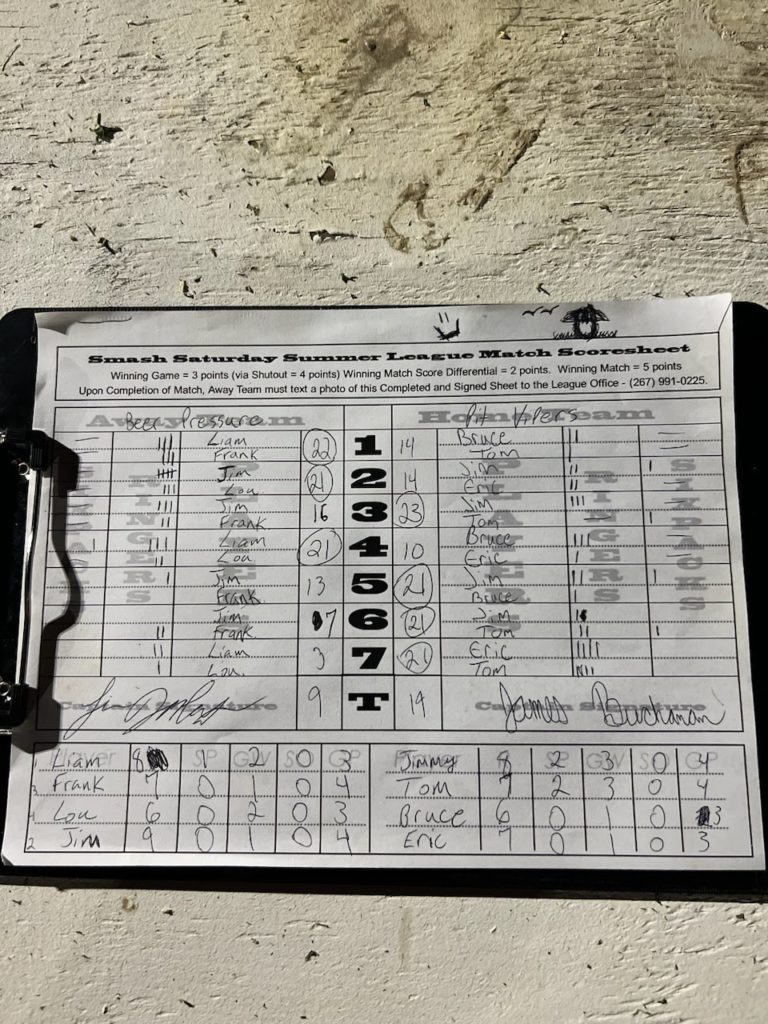 Smash Saturday Summer League Match Scoresheet
Winning Game = 3 points (via Shutout = 4 points) Winning Match Score Differential = 2 points. Winning Match = 5 points
Upon Completion of Match, Away Team must text a photo of this Completed and Signed Sheet to the League Office - (267) 991-0225.
Away Team Beer Pressure Home Team Pit Vipers
Liam 22 1 14 Bruce
Frank Tom
Jim 21 2 14 Jim
Lou Eric
Jim 16 3 23 Jim
Frank Tom
Liam 21 4 10 Bruce
Lou Eric
Jim 13 5 21 Jim
Frank Bruce
Jim 7 6 21 Jim
Frank Tom
Liam 3 7 21 Eric
Lou Tom
Captain Signature 9 T 14 Captain Signature
James Buchanan
RINGERS PLAYERS PLAYERS RINGERS SIXPACKS
SP GW SO GP SP GW SO GP
Liam 8 1 2 0 3 Jimmy 8 2 3 0 4
3 Frank 7 0 1 0 4 Tom 7 2 3 0 4
4 Lou 6 0 2 0 3 Bruce 6 0 1 0 3
2 Jim 9 0 1 0 4 Eric 7 0 1 0 3